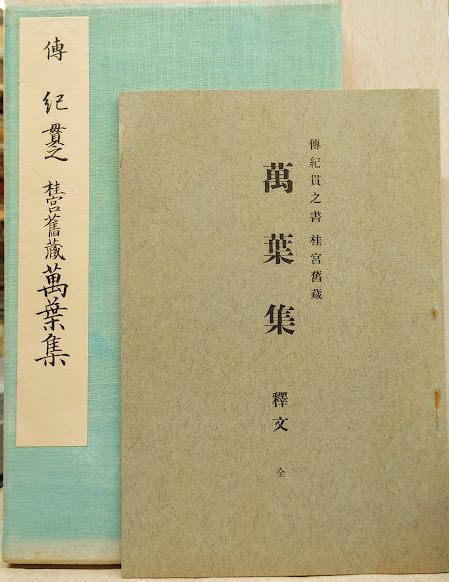 傳紀貫之書 桂宮舊藏
萬葉集 釋文 全
傳 紀貫之 桂宮舊藏 萬葉集